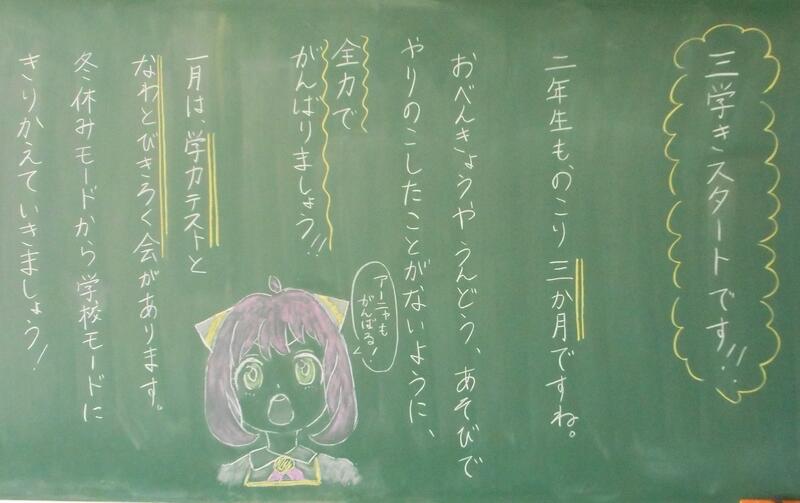 三学きスタートです!!
二年生も、のこり三か月ですね。
おべんきょうやうんどう、あそびで
やりのこしたことがないように、
全力で
がんばりましょう!!
一月は、学力テストと
なわとびきろく会があります。
冬休みモードから学校モードに
きりかえていきましょう!
アーニャも
がんばるっ!!